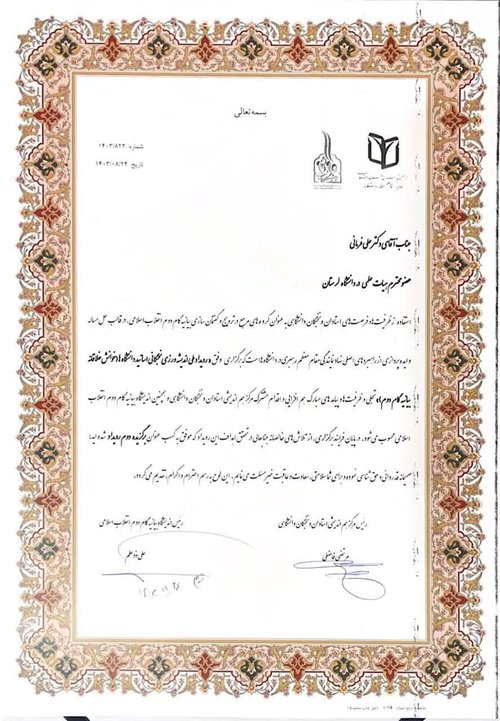 بسمه تعالی
شماره: ۱۴۰۳/۸۲۳
تاریخ: ۱۴۰۳/۰۸/۲۴
جناب آقای دکتر علی قربانی
عضو محترم هیات علمی در دانشگاه لرستان
استفاده از ظرفیت ها و فرصت های استادان و نخبگان دانشگاهی به عنوان گروه های مرجع در ترویج و گفتمان سازی بیانیه گام دوم انقلاب اسلامی، در قالب حل مساله
و ایده پردازی از راهبردهای اصلی نهاد نمایندگی مقام معظم رهبری در دانشگاه ها است که برگزاری موفق « رویداد ملی اندیشه ورزی نخبگانی اساتید دانشگاه با خوانش خلاقانه
بیانیه گام دوم»، تجلی و ظرفیت ها و پیامدهای مبارک هم افزایی و اقدام مشترک مرکز هم اندیشی استادان و نخبگان دانشگاهی و همچنین اندیشگاه بیانیه گام دوم انقلاب
اسلامی محسوب می شود. در پایان فرایند برگزاری، از تلاش های خالصانه جنابعالی در تحقق اهداف این رویداد که موفق به کسب عنوان برگزیده دوم رویداد شده اید؛
صمیمانه قدردانی و حق شناسی نموده و برای شما سلامتی، سعادت و عاقبت خیر مسئلت می نمایم. این لوح به رسم احترام و اکرام، تقدیم می گردد.
رئیس مرکز هم اندیشی استادان و نخبگان دانشگاهی
مرتضی فاضلی
رئیس اندیشگاه بیانیه گام دوم انقلاب اسلامی
علی ذوعلم